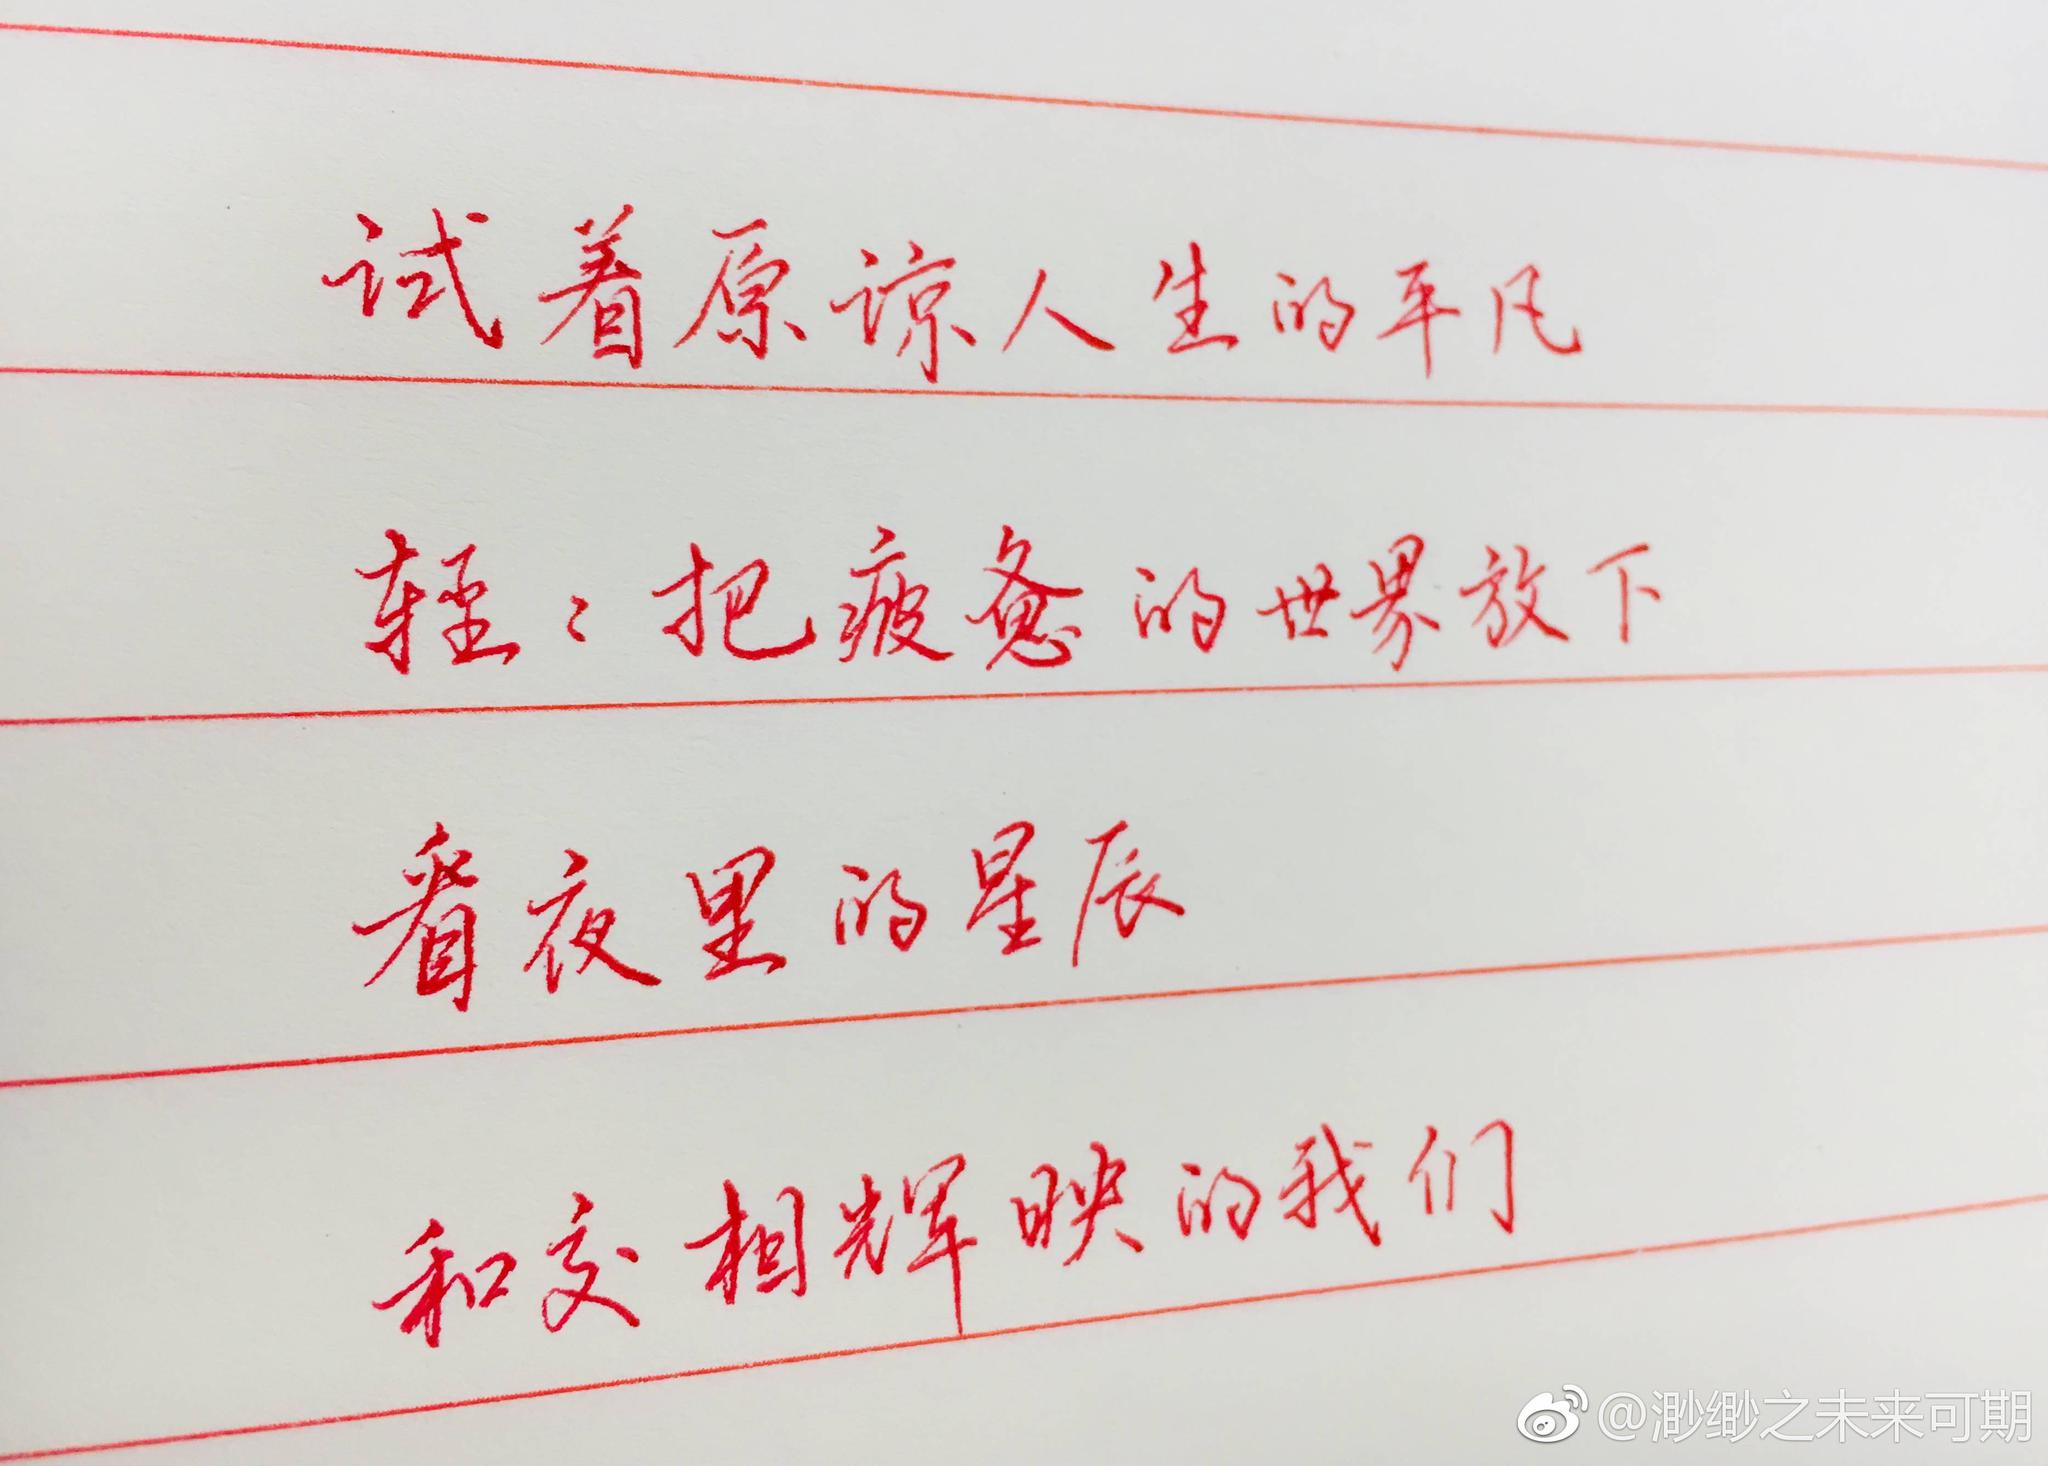 试着原谅人生的平凡
轻轻把疲惫的世界放下
看夜里的星辰
和交相辉映的我们
@渺缈之未来可期